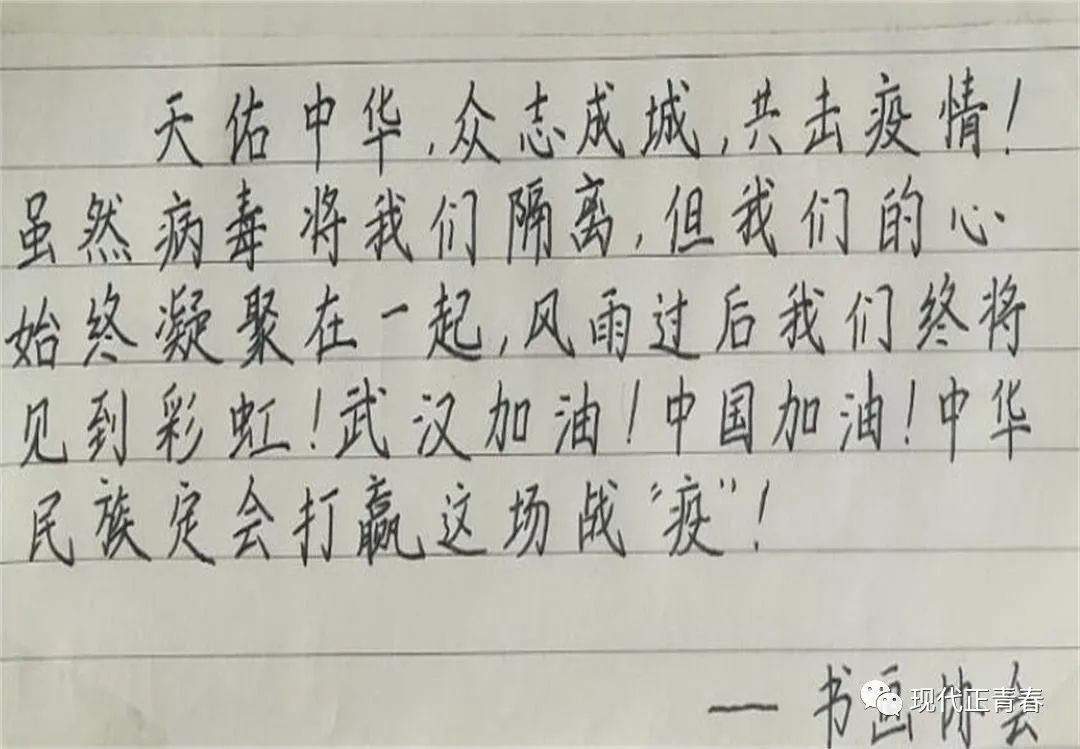 天佑中华,众志成城,共击疫情!
虽然病毒将我们隔离,但我们的心
始终凝聚在一起,风雨过后我们终将
见到彩虹!武汉加油!中国加油!中华
民族定会打赢这场战“疫”!
——书画协会
现代正青春